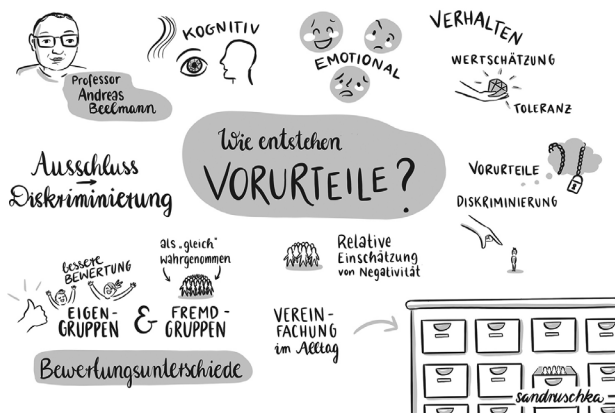 Professor
Andreas
Beelmann
KOGNITIV
EMOTIONAL
VERHALTEN
WERTSCHÄTZUNG
TOLERANZ
Wie entstehen
VORURTEILE?
Ausschluss
Diskriminierung
VORURTEILE
DISKRIMINIERUNG
bessere
BEWERTUNG
EIGEN-
GRUPPEN
&
als „gleich"
wahrgenommen
FREMD-
GRUPPEN
Bewertungsunterschiede
Relative
Einschätzung
von Negativität
VEREIN-
FACHUNG
im Alltag
sandruschka